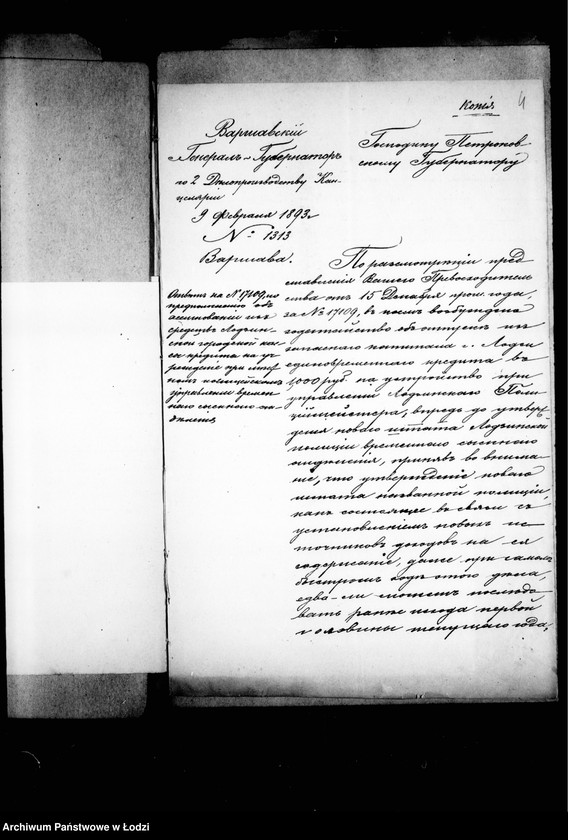 Копія
4
Варшавскій
Генералъ-Губернаторъ
по 2 Дѣлопроизводству Кан-
целяріи
9 Февраля 1893 г
№ 1313
Варшава.
Господину Петроков-
скому Губернатору
Отвѣтъ на № 17109, по
предположенію объ
ассигнованіи изъ
средствъ Лодзин-
ской городской кас-
сы кредита на уч-
режденіе при
полицейскомъ
управленіи времен-
наго сыскного от-
дѣленія
По разсмотрѣніи пред-
ставленія Вашего Превосходитель-
ства отъ 15 Декабря прош. года,
за № 17109, въ коемъ возбуждено
ходатайство объ отпускѣ изъ
запаснаго капитала г. Лодзи
единовременнаго кредита въ
1000 руб. на устройство при
управленіи Лодзинскаго Поли-
ціймейстера, впредь до утверж-
денія новаго штата Лодзинской
полиціи временнаго сыскного
отдѣленія, принявъ во внима-
ніе, что утвержденіе новаго
штата названной полиціи,
какъ состоящее въ связи съ
установленіемъ новыхъ ис-
точниковъ доходовъ на ея
содержаніе, даже при самомъ
быстромъ ходѣ этого дѣла,
едва-ли можетъ послѣдо-
вать ранѣе исхода первой
половины текущаго года,
Archiwum Państwowe w Łodzi